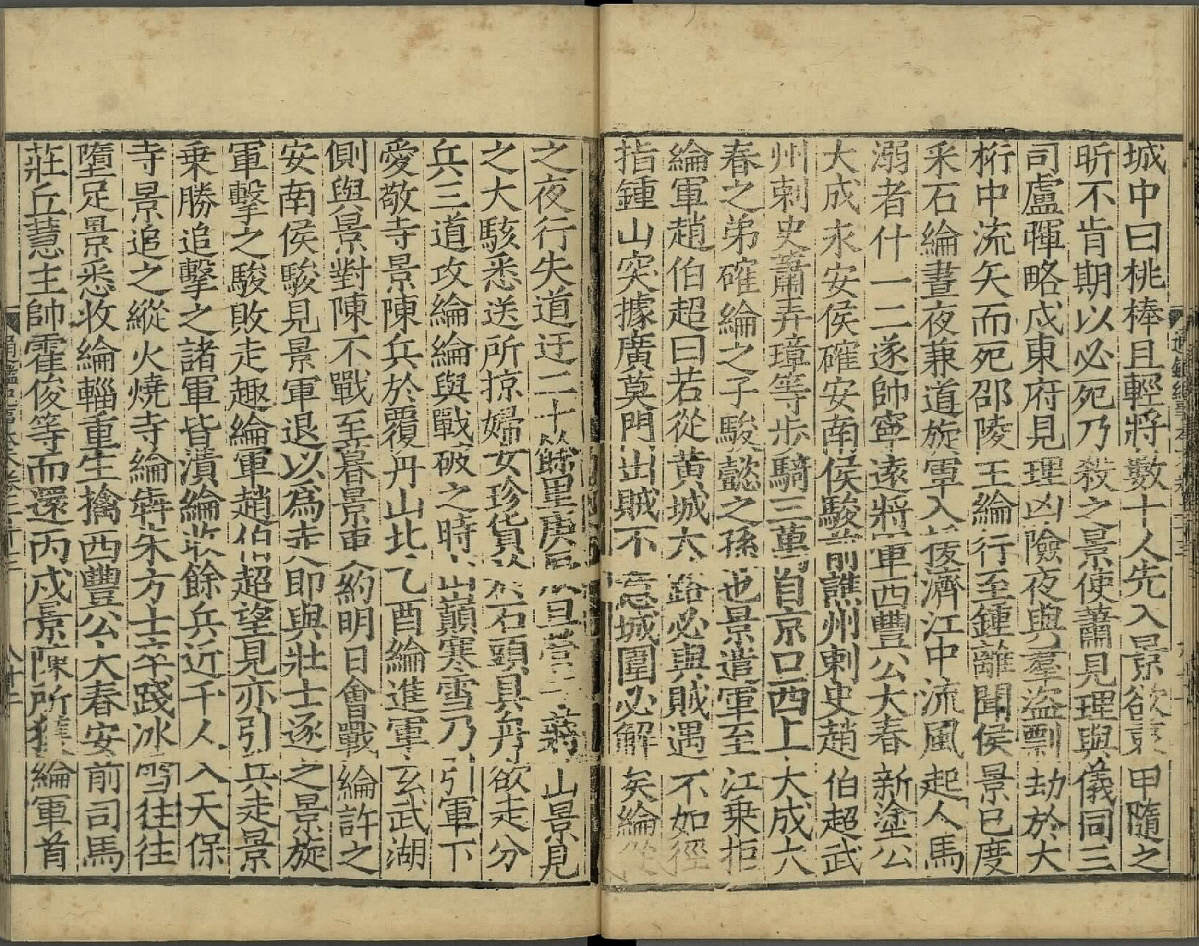 城中曰桃棒且輕將數十人先入景欲衷甲隨之
昕不肯期以必死乃殺之景使蕭見理與儀同三
司盧暉略戍東府見理凶險夜與羣盜剽劫於大
桁中流矢而死邵陵王綸行至鍾離聞侯景已度
采石綸晝夜兼道旋軍入援濟江中流風起人馬
溺者什一二遂帥寧遠將軍西豐公大春新塗公
大成永安侯確安南侯駿前譙州刺史趙伯超武
州刺史蕭弄璋等步騎三萬自京口西上大成六
春之弟確綸之子駿懿之孫也景遣軍至江乗拒
綸軍趙伯超曰若從黃城大路必與賊遇不如徑
指鍾山突據廣莫門出賊不意城圍必解矣綸從
之夜行失道迂二十餘里庚辰旦營于蔣山景見
之大駭悉送所掠婦女珍貨於石頭具舟欲走分
兵三道攻綸綸與戰破之時山巔寒雪乃引軍下
愛敬寺景陳兵於覆舟山北乙酉綸進軍玄武湖
側與景對陳不戰至暮景更約明日會戰綸許之
安南侯駿見景軍退以為走即與壯士逐之景旋
軍擊之駿敗走趣綸軍趙伯超望見亦引兵走景
乗勝追擊之諸軍皆潰綸收餘兵近千人入天保
寺景追之縱火燒寺綸犇朱方士卒踐冰雪往往
墮足景悉收綸輜重生擒西豐公大春安前司馬
莊丘慧主帥霍俊等而還丙戌景陳所獲綸軍首